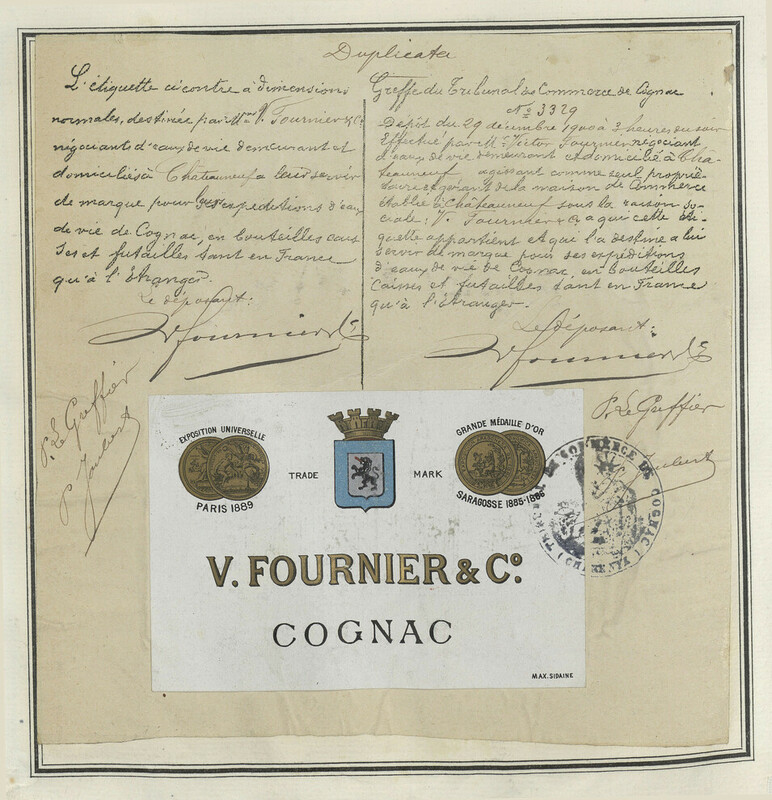 Duplicata
L'étiquette ci contre à dimensions
normales, destinée par V. Fournier & Cie
négociants d'eaux de vie demeurant et
domiciliés à Châteauneuf a leur servir
de marque pour expéditions d'eaux
de vie de Cognac, en bouteilles cais
ses et futailles tant en France
qu'à l'Etranger.
Le déposant:
V Fournier & Cie
P. Le Greffier
P. Joubert
Greffe du Tribunal de Commerce de Cognac
No 3329
Dépôt du 29 décembre 1900 à 3 heures du soir
Effectué par M. Victor Fournier négociant
d'eaux de vie demeurant et domicilié à Châ-
teauneuf, agissant comme seul proprié-
taire et gérant de la maison de Commerce
établie à Châteauneuf sous la raison so-
ciale: V. Fournier & Co a qui cette éti-
quette appartient et qui l'a destinée a lui
servir de marque pour ses expéditions
d'eaux de vie de Cognac, en bouteilles
Caisses et futailles tant en France
qu'à l'étranger.
Le Déposant:
V Fournier & Cie
P. Le Greffier
Joubert
TRIBUNAL DE COMMERCE DE COGNAC
(CHARENTE)
EXPOSITION UNIVERSELLE
PARIS 1889
TRADE MARK
GRANDE MÉDAILLE D'OR
SARAGOSSE 1885-1886
V. FOURNIER & Co.
COGNAC
MAX. SIDAINE